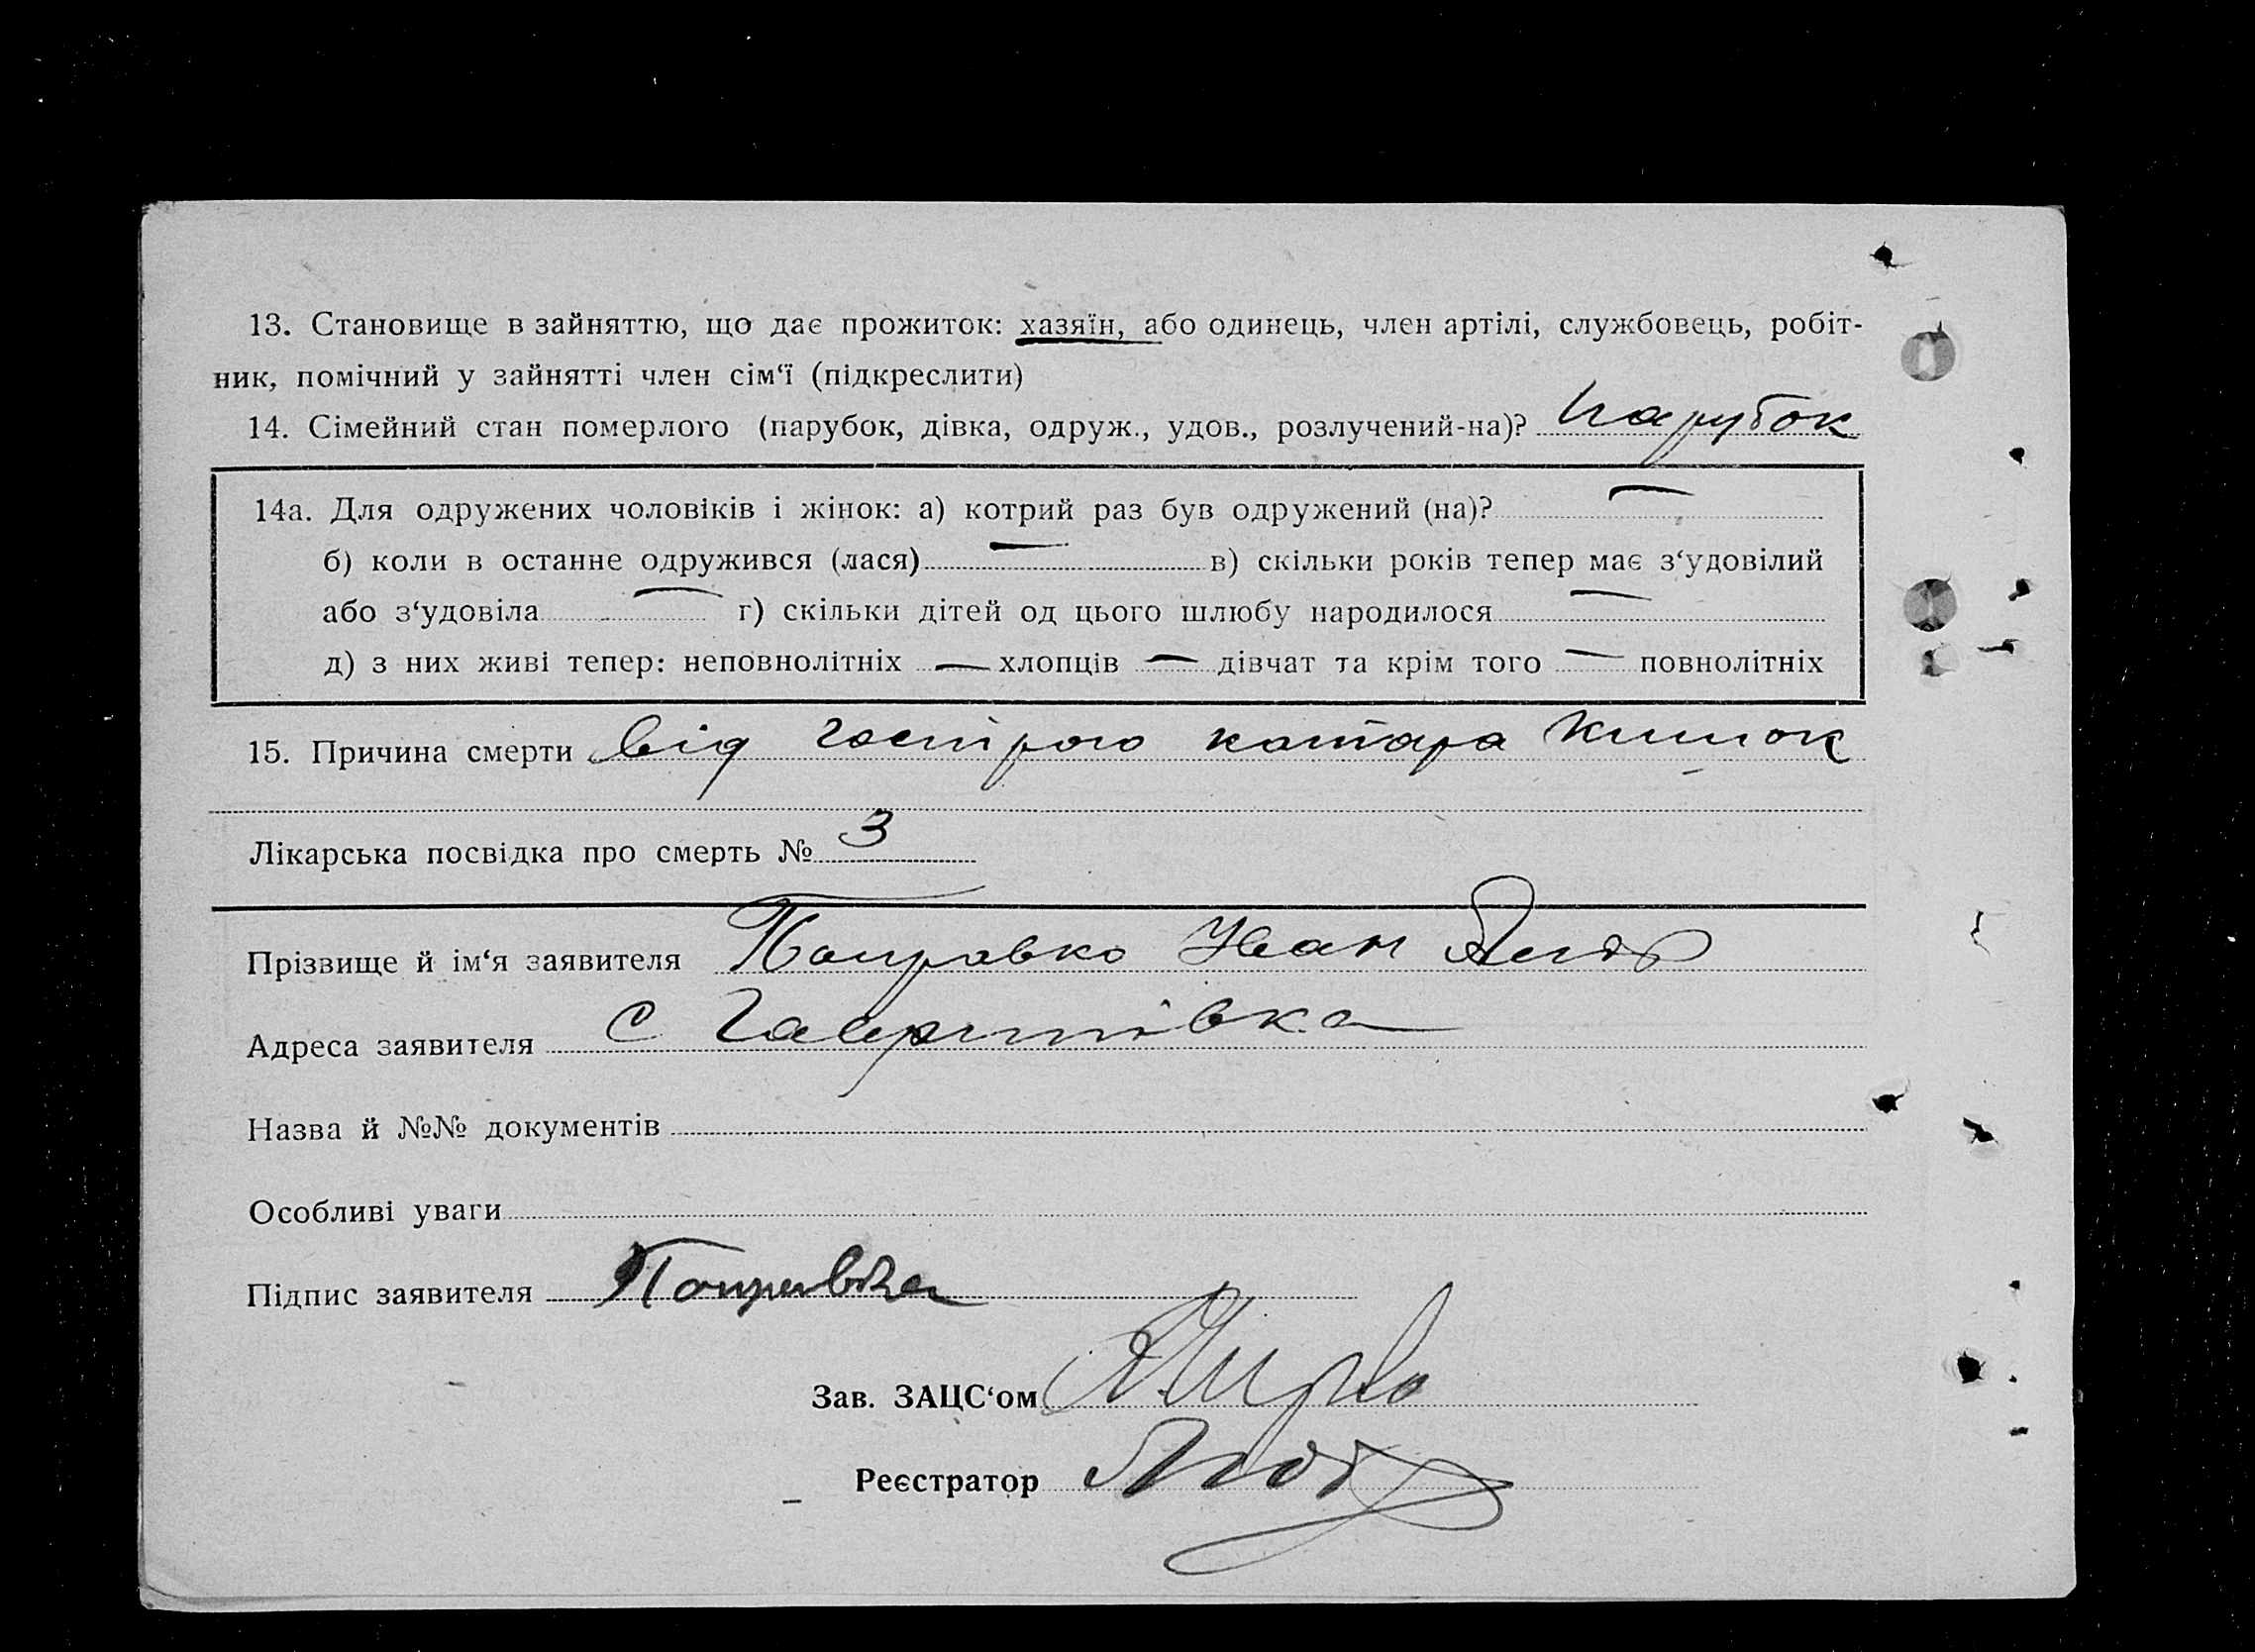 13. Становище в зайняттю, що дає прожиток: хазяїн, або одинець, член артілі, службовець, робіт-
ник, помічний у зайнятті член сім‘ї (підкреслити)
14. Сімейний стан померлого (парубок, дівка, одруж., удов., розлучений-на)? парубок
14а. Для одружених чоловіків і жінок: а) котрий раз був одружений (на)? —
б) коли в останне одружився (лася) — в) скільки років тепер має з‘удовілий
або з‘удовіла — г) скільки дітей од цього шлюбу народилося —
д) з них живі тепер: неповнолітніх — хлопців — дівчат та крім того — повнолітніх
15. Причина смерти від гострого катара кишок
Лікарська посвідка про смерть № 3
Прізвище й ім‘я заявителя Поправко Іван
Адреса заявителя с Гавришівка
Назва й №№ документів
Особливі уваги
Підпис заявителя Поправка
Зав. ЗАЦС‘ом
Реєстратор